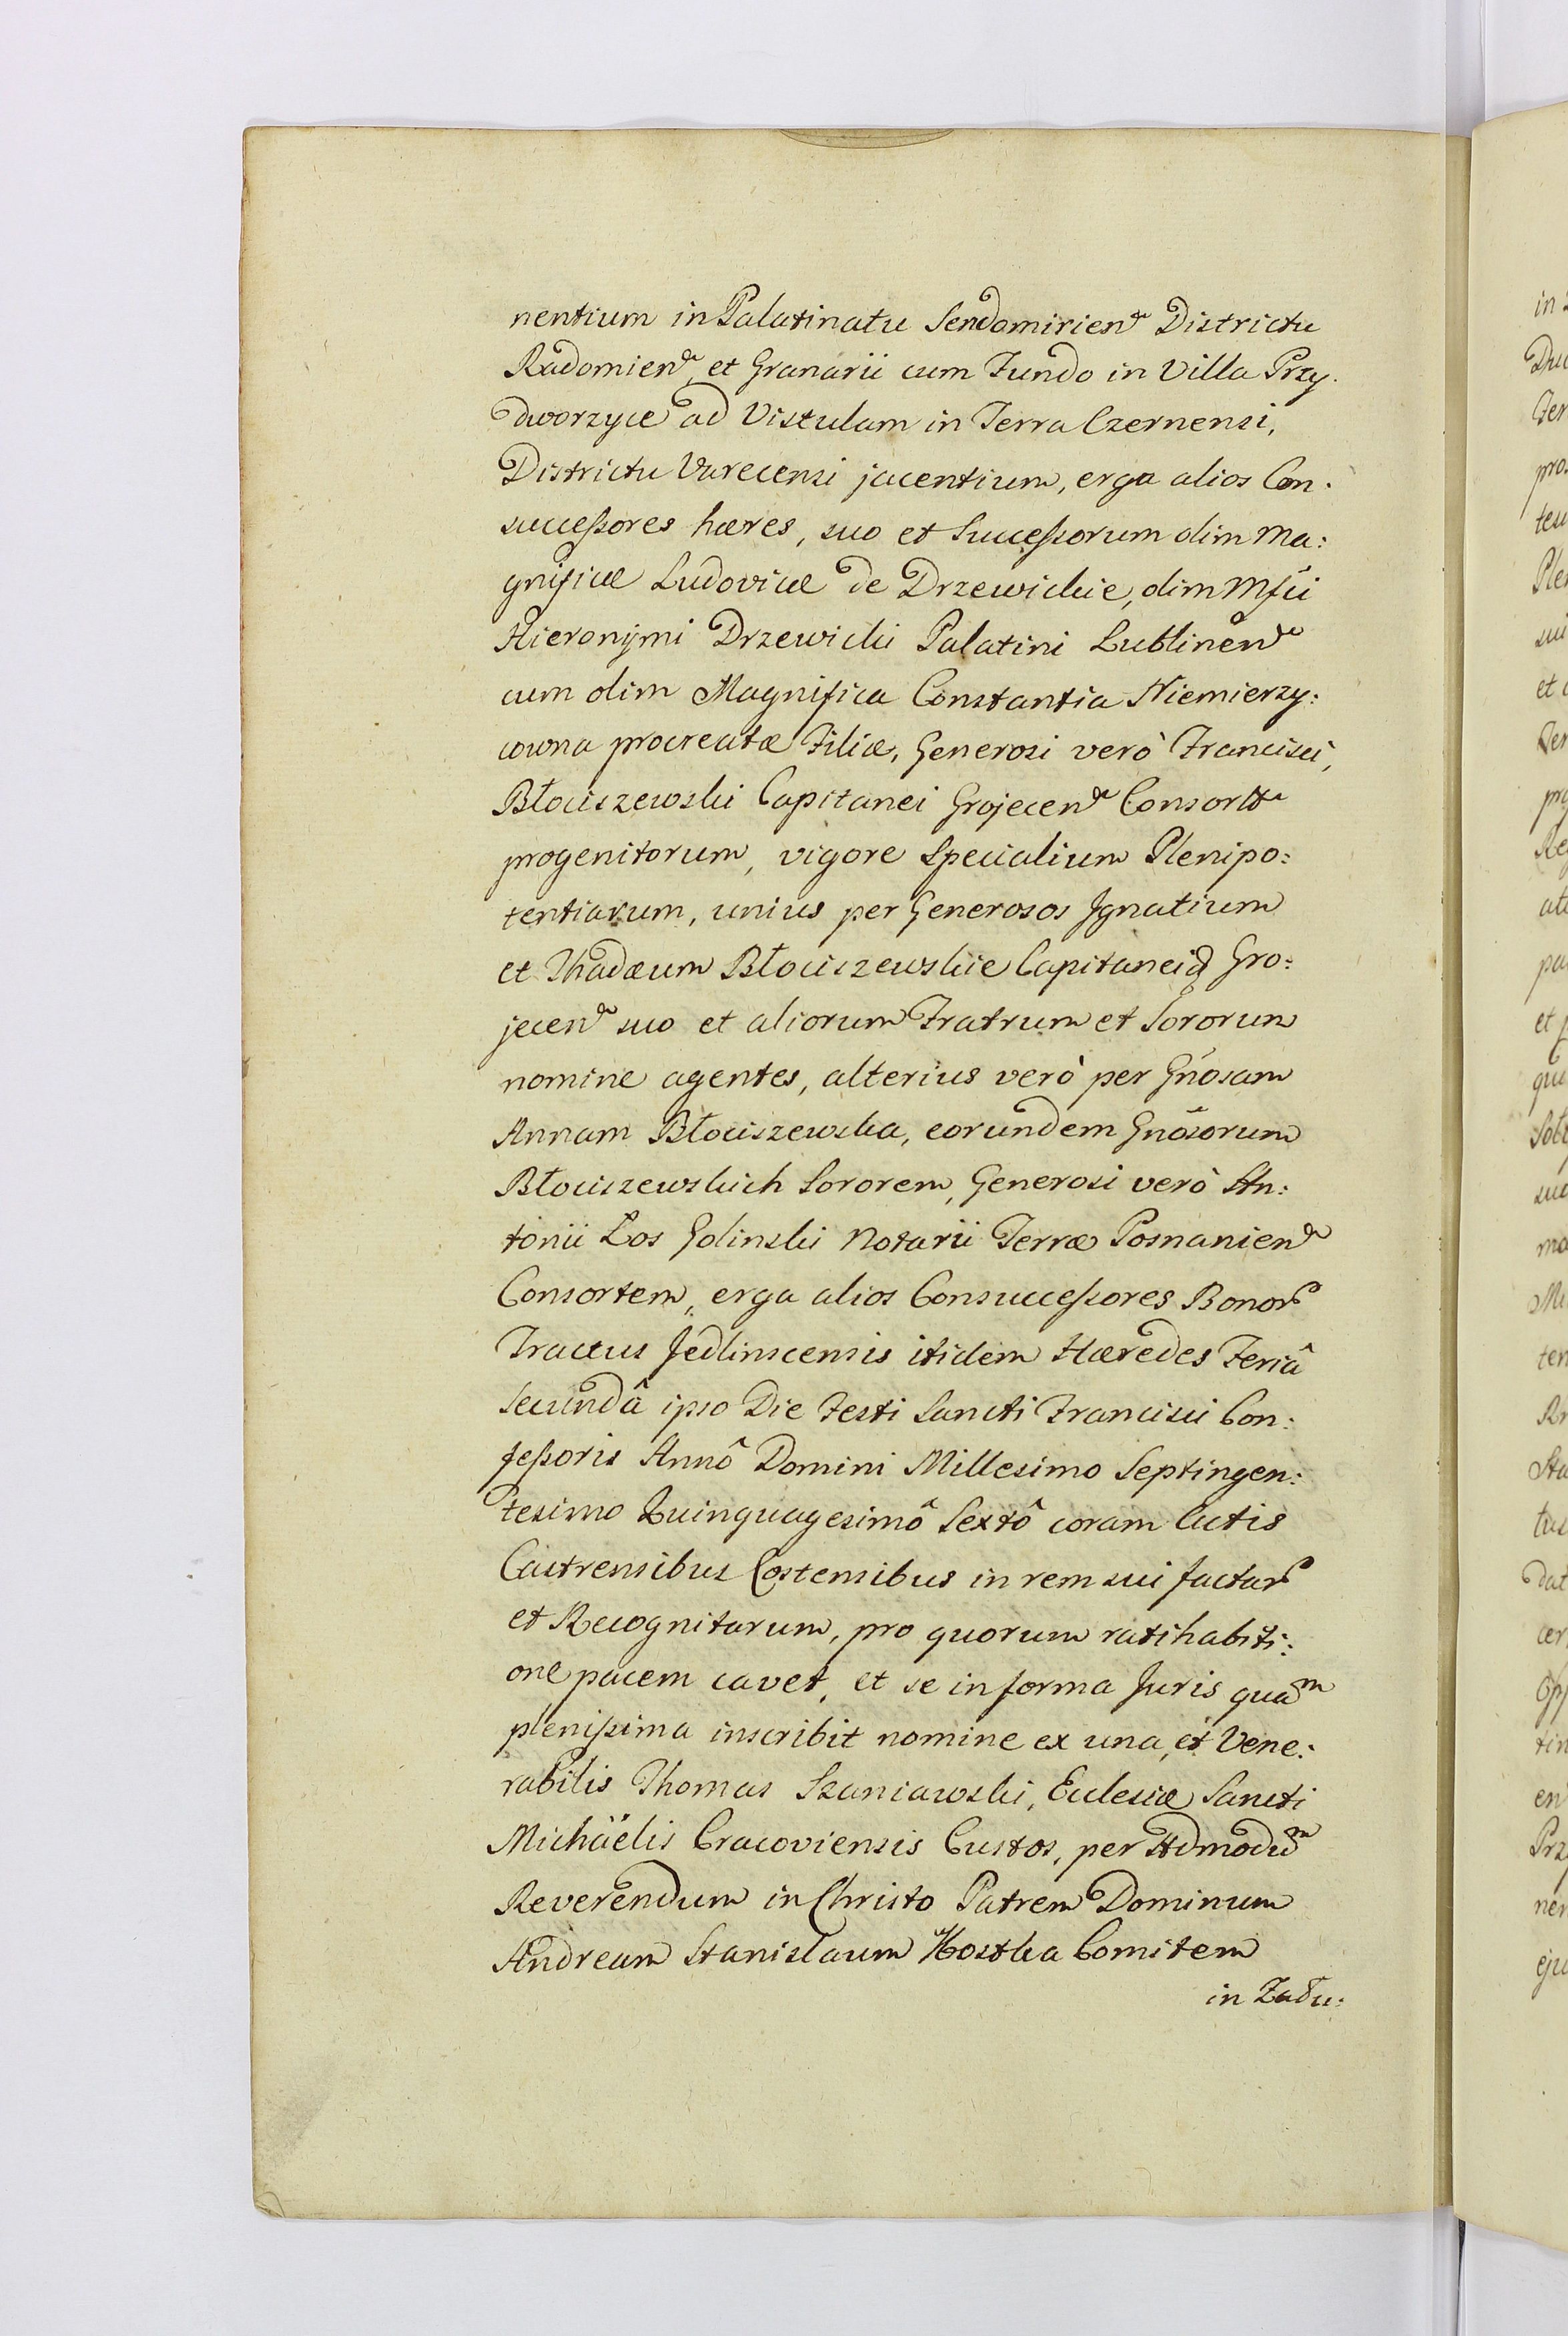 nentium in Palatinatu Sendomirien̄ Districtu
Radomien̄, et Granarii cum Fundo in Villa Przy:
dworzyce ad Vistulam in Terra Czernensi,
Districtu Varecensi jacentium, erga alios Con:
successores hæres, suo et Successorum olim Ma:
gnificæ Ludovicæ de Drzewickie, olim Mfci
Hieronymi Drzewicki Palatini Lublinen̄
cum olim Magnifica Constantia Niemierzy:
cowna procreatæ Filiæ, Generosi verò Francisci,
Błociszewski Capitanei Grojecen̄ Consort̄
progenitorum, vigore Specialium Plenipo:
tentiarum, unius per Generosos Ignatium
et Thadæum Błociszewskie Capitaneid Gro:
jecen̄ suo et aliorum Fratrum et Sororum
nomine agentes, alterius verò per Gnosam
Annam Błociszewska, eorundem Gnosorum
Błociszewskich Sororem, Generosi verò An:
tonii Łos Golinski Notarii Terræ Posnanien̄
Consortem, erga alios Consuccessores Bonor̄
Tractus Jedlinscensis itidem Hæredes Feriâ
Secundâ ipso Die Festi Sancti Francisci Con:
fessoris Annô Domini Millesimo Septingen:
tesimo Quinquagesimô Sextô coram Actis
Castrensibus Costensibus in rem sui factar̄
et Recognitarum, pro quorum ratihabiti:
one pacem cavet, et se in forma Juris quam
plenissima inscribit nomine ex una, et Vene:
rabilis Thomas Szaniawski, Ecclesiæ Sancti
Michäelis Cracoviensis Custos, per Admodum
Reverendum in Christo Patrem Dominum
Andream Stanislaum Kostka Comitem
in Zału:
in
Duc
Ter
pro
Ple
sui
et
Reg
pa
et
qui
mo
ten
Sta
tus
dat
cer
tin
en
Prz
ner
eju